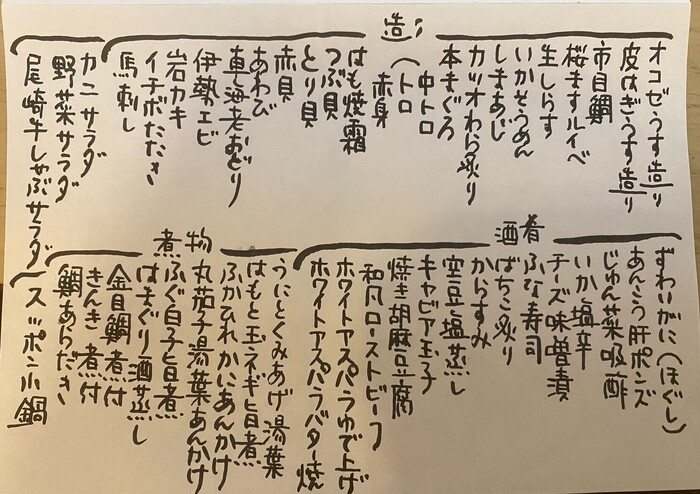 造り
オコゼうす造り
皮はぎうす造り
市目鯛
桜ますルイベ
生しらす
いかそうめん
しまあじ
カツオわら炙り
本まぐろ
中トロ
(トロ
赤身
はも焼霜
つぶ貝
とり貝
赤貝
あわび
車海老おどり
伊勢エビ
岩カキ
イチボたたき
馬刺し
カニサラダ
野菜サラダ
尾崎牛しゃぶサラダ
酒肴
ずわいがに(ほぐし)
あんこう肝ポンズ
じゅん菜吸酢
いか塩辛
チーズ味噌漬
ふな寿司
ばちこ炙り
からすみ
空豆塩蒸し
キャビア玉子
焼き胡麻豆腐
和風ローストビーフ
ホワイトアスパラゆで上げ
ホワイトアスパラバター焼
煮物
うにとくみあげ湯葉
はもと玉ネギ旨煮
ふかひれかにあんかけ
丸茄子湯葉あんかけ
ふぐ白子旨煮
はまぐり酒蒸し
金目鯛煮付
きんき煮付
鯛あらだき
スッポン小鍋